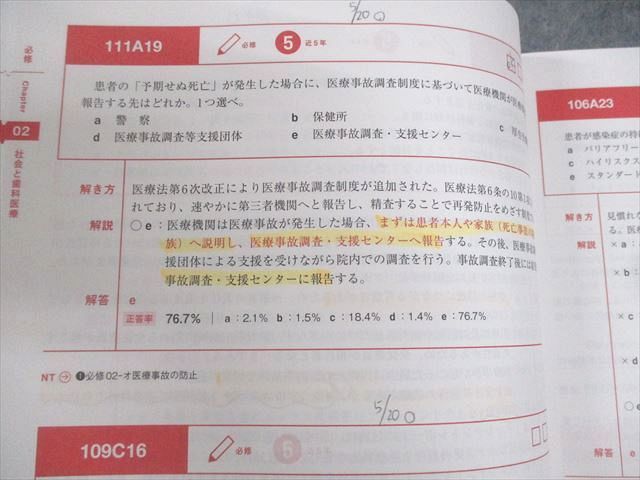 5/20
111A19
必修
5
近5年
患者の「予期せぬ死亡」が発生した場合に、医療事故調査制度に基づいて医療機関が
報告する先はどれか。1つ選べ。
a 警察
b 保健所
c 厚生
d 医療事故調査等支援団体
e 医療事故調査・支援センター
必修
Chapter
02
社会と歯科医療
解き方
医療法第6次改正により医療事故調査制度が追加された。医療法第6条の10第1
れており、速やかに第三者機関へと報告し、精査することで再発防止をめざす制度
解説
○e：医療機関は医療事故が発生した場合、まずは患者本人や家族（死亡事故の
族）へ説明し、医療事故調査・支援センターへ報告する。その後、医療事故
援団体による支援を受けながら院内での調査を行う。事故調査終了後には
事故調査・支援センターに報告する。
解答
e
正答率
76.7% | a：2.1% b：1.5% c：18.4% d：1.4% e：76.7%
NT → ❶必修02-オ医療事故の防止
5/20
109C16
必修
5
近5年
106A23
患者が感染症の持
a バリアフリー
c ハイリスクス
e スタンダード
解き方
見慣れ
る。医
解説
×a：
×b：
×c
×d：
○e
解答
e